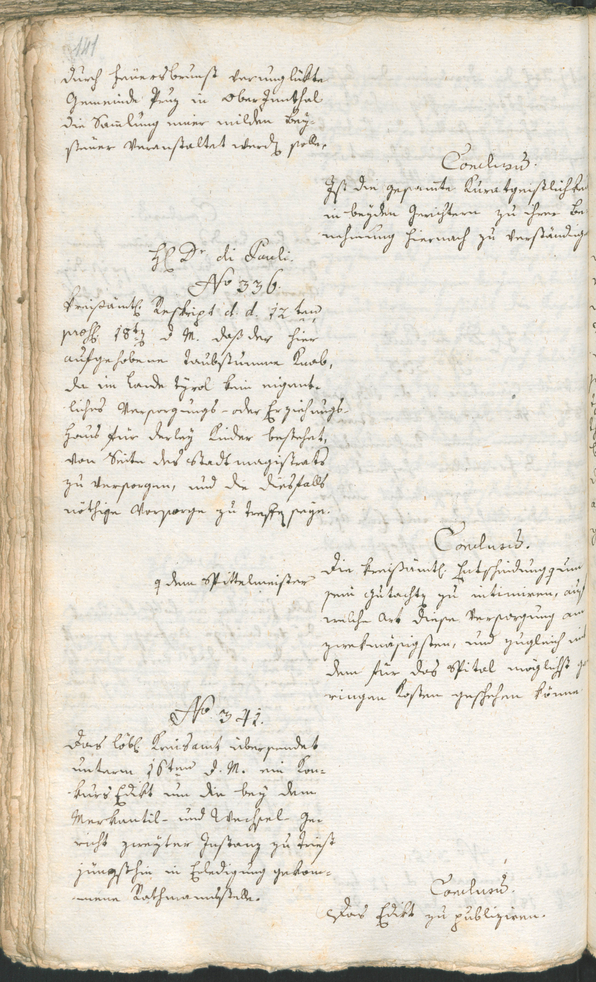 141
durch Feuersbrunst verunglükte
Gemeinde Pruz in Oberinnthal
die Samlung einer milden Bey-
steuer veranstaltet werden solle.
Conclusum.
Ist die gesamte Kuratgeistlichkei
in beyden Gerichtern zu ihrer Be
nehmung hiernach zu verständig
H. Dr. di Pauli.
No 336.
Kreisämtl. Reskript d. d. 12ten
18ten d. M. daß der hier
aufgehobene taubstumme Knab,
da im Lande Tyrol kein eigent-
liches Versorgungs- oder Erziehungs-
haus für derley Kinder bestehet,
von Seite des Stadtmagistrats
zu versorgen, und die diesfalls
nöthige Vorsorge zu treffen seye.
Conclusum.
Die kreisämtl. Entscheidung um
dem Spittelmeister
sein Gutachten zu intimiren, auf
welche Art diese Versorgung am
zwekmäsigsten, und zugleich mit
dem für das Spital möglichst ge
ringen Kosten geschehen könne
No. 341.
Das löbl. Kreisamt übersendet
unterm 16ten d. M. ein Kon-
kurs Edikt um die bey dem
Merkantil- und Wechsel Ge-
richt zweyter Instanz zu Triest
jüngsthin in Erledigung gekom-
mene Rathmannsstelle.
Conclusum.
Das Edikt zu publiziren.